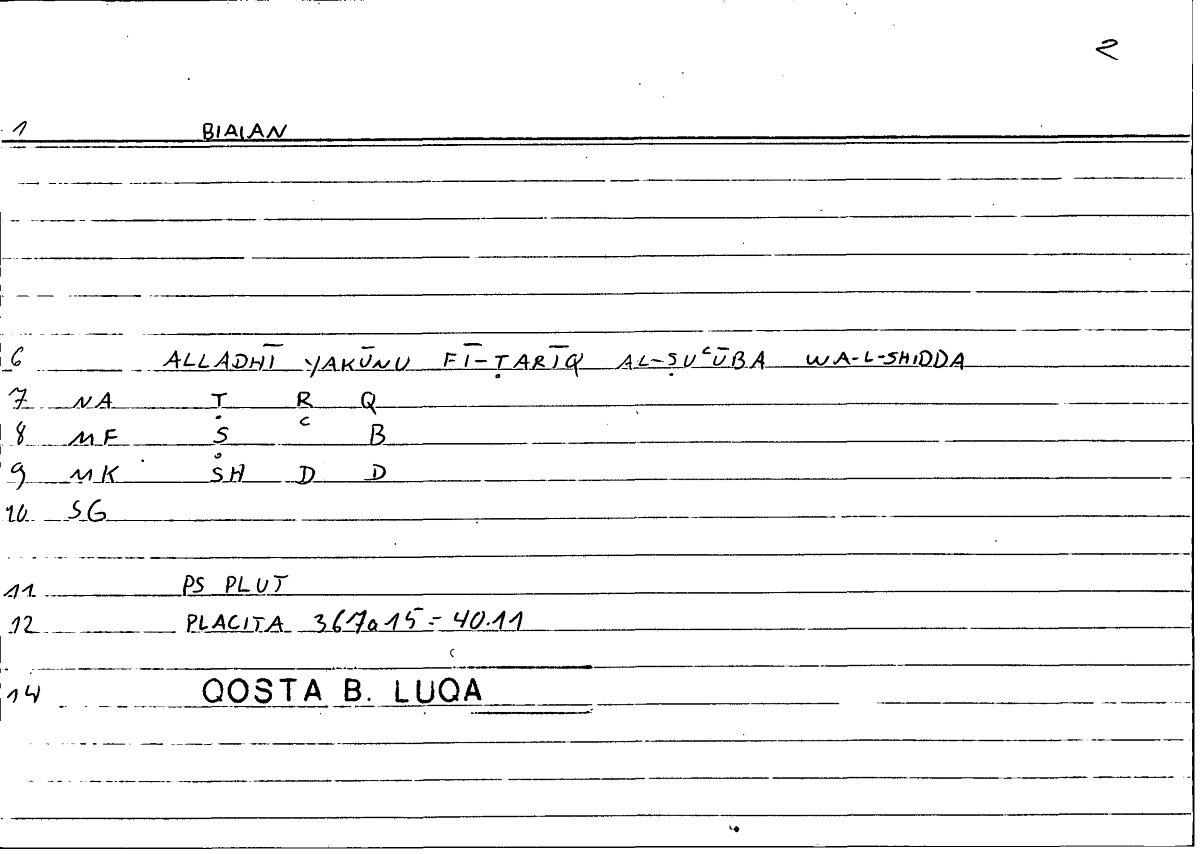 2
1 BIAIAN
6 ALLADHĪ YAKŪNU FĪ-ṬARĪQ AL-ṢUʿŪBA WA-L-SHIDDA
7 NA Ṭ R Q
8 MF Ṣ ʿ B
9 MK SH D D
10 SG
11 PS PLUT
12 PLACITA 367a15 = 40.11
14 QOSTA B. LUQA